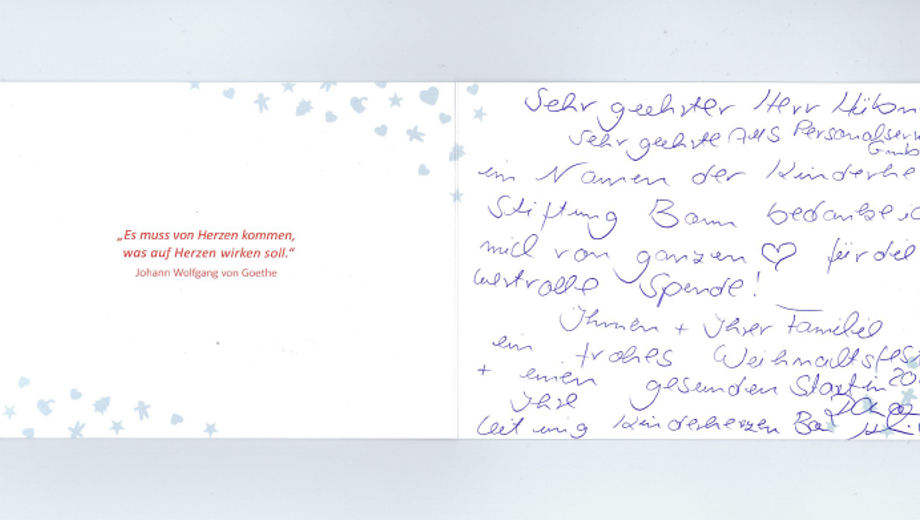 „Es muss von Herzen kommen,
was auf Herzen wirken soll.“
Johann Wolfgang von Goethe
Sehr geehrter Herr Hübn
Sehr geehrte Personalserv
Gmb
im Namen der Kinderhe
Stiftung Bonn bedanke ic
mich von ganzen ♡ für die
wertvolle Spende!
Ihnen + Ihrer Familie
ein frohes Weihnachtsfes
+ einen gesunden Start in 20
Ihre
Leitung Kinderherzen